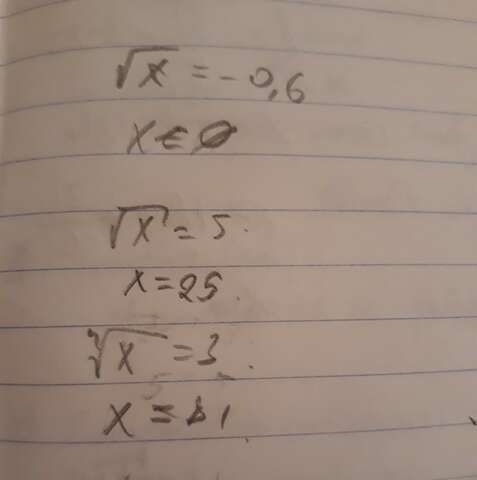 √x = -0,6
x ∈ ∅
√x = 5.
x = 25.
∜x = 3.
x = 81.